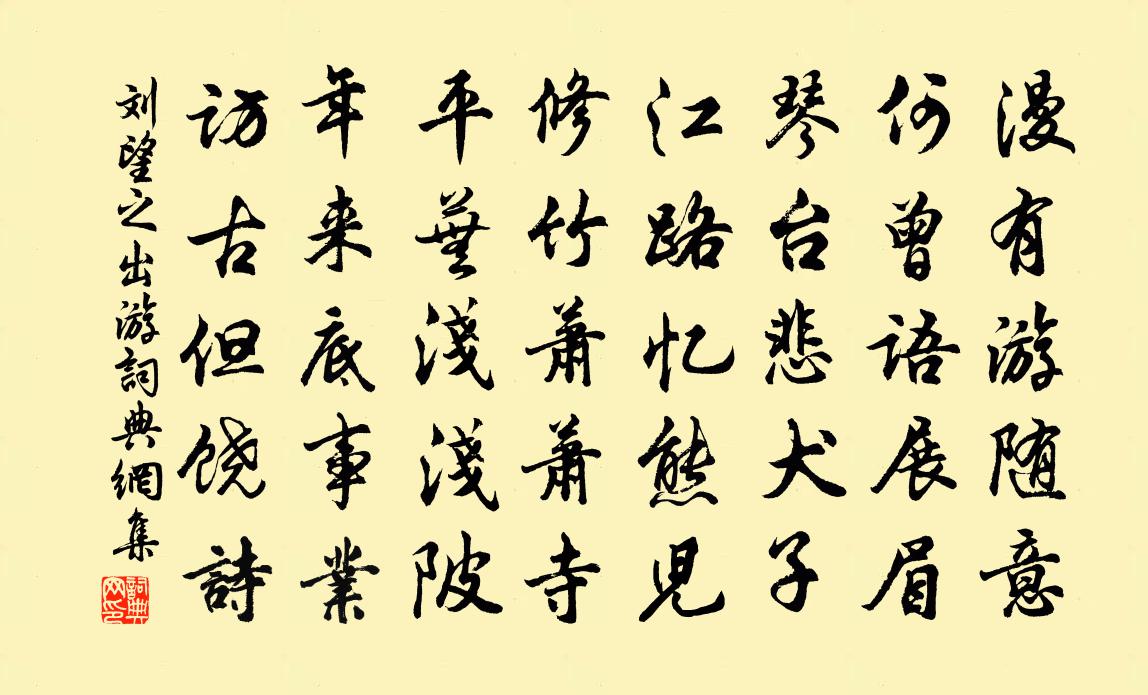 漫有游随意
何曾语展眉
琴台悲犬子
江路忆熊児
修竹萧萧寺
平蕪淺淺陂
年来底事業
访古但饶詩
刘望之出游詞典網集
詞典网印